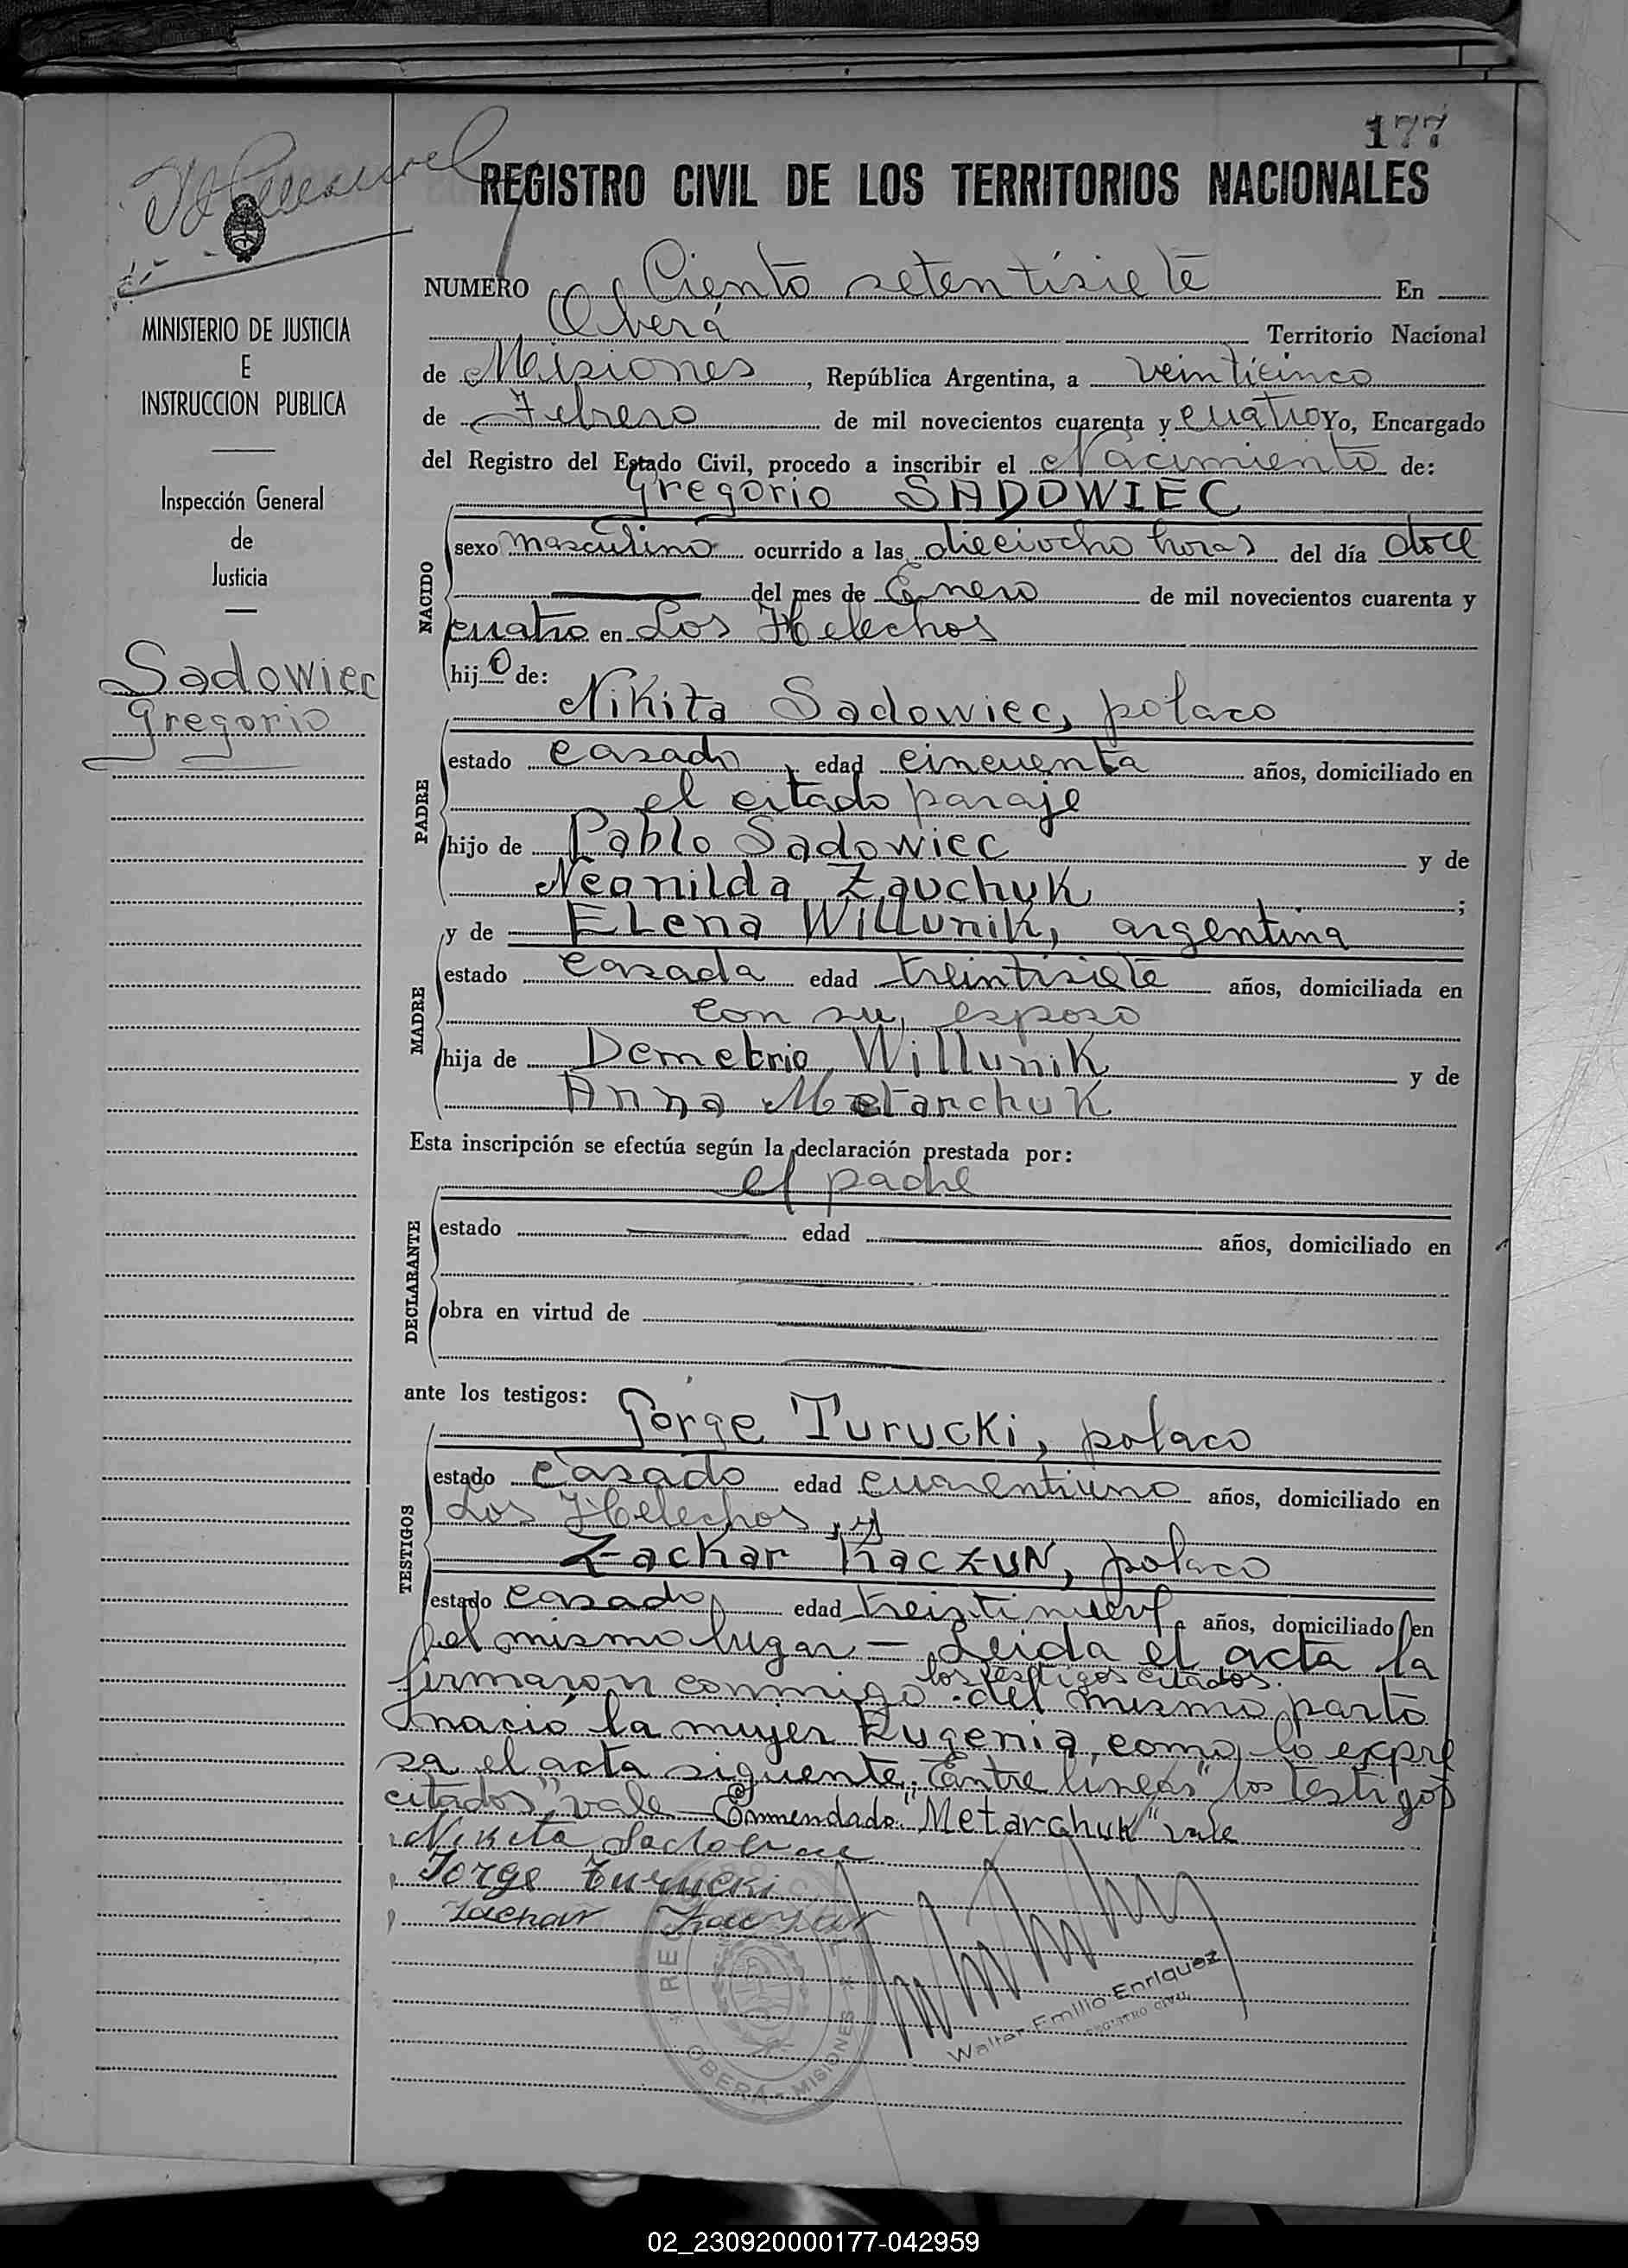 177
REGISTRO CIVIL DE LOS TERRITORIOS NACIONALES
MINISTERIO DE JUSTICIA
E
INSTRUCCION PUBLICA
Inspección General
de
Justicia
Sadowiec
Gregorio
NUMERO Ciento setentisiete En
Oberá Territorio Nacional
de Misiones, República Argentina, a veinticinco
de Febrero de mil novecientos cuarenta y cuatro Yo, Encargado
del Registro del Estado Civil, procedo a inscribir el Nacimiento de:
Gregorio SADOWIEC
NACIDO
sexo masculino ocurrido a las dieciocho horas del día doce
del mes de Enero de mil novecientos cuarenta y
cuatro en Los Helechos
hijo de:
Nikita Sadowiec, polaco
PADRE
estado casado, edad cincuenta años, domiciliado en
el citado paraje
hijo de Pablo Sadowiec y de
Neonilda Zauchuk;
y de Elena Willunik, argentina
MADRE
estado casada edad treintisiete años, domiciliada en
con su esposo
hija de Demetrio Willunik y de
Anna Metarchuk
Esta inscripción se efectúa según la declaración prestada por:
el padre
DECLARANTE
estado edad años, domiciliado en
obra en virtud de
ante los testigos:
Jorge Turucki, polaco
TESTIGOS
estado casado edad cuarentiuno años, domiciliado en
Los Helechos, y
Zachar Kaczun, polaco
estado casado, edad treintinueve años, domiciliado en
el mismo lugar - Leida el acta la
los testigos citados.
firmaron conmigo. del mismo parto
nació la mujer Eugenia, como lo expre
sa el acta siguiente. Entre líneas "los testigos
citados", vale - Enmendado: "Metarchuk" vale
Nikita
Jorge Turucki
Zachar
REGISTRO CIVIL
OBERÁ - MISIONES
Walter Emilio Enriquez
REGISTRO CIVIL
02_230920000177-042959